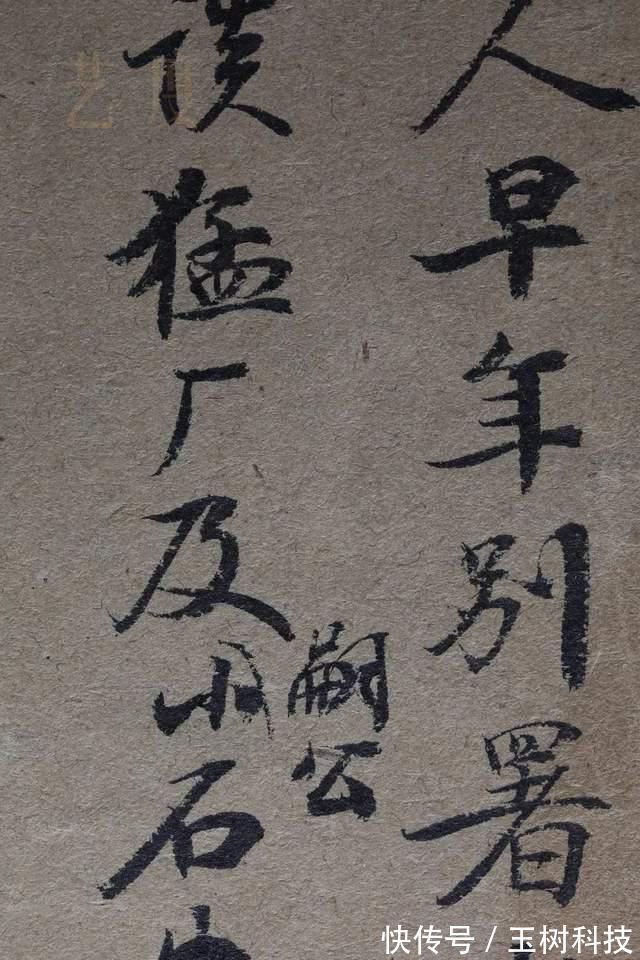 人早年别署
嗣公
猛厂及石
快传号 / 玉树科技